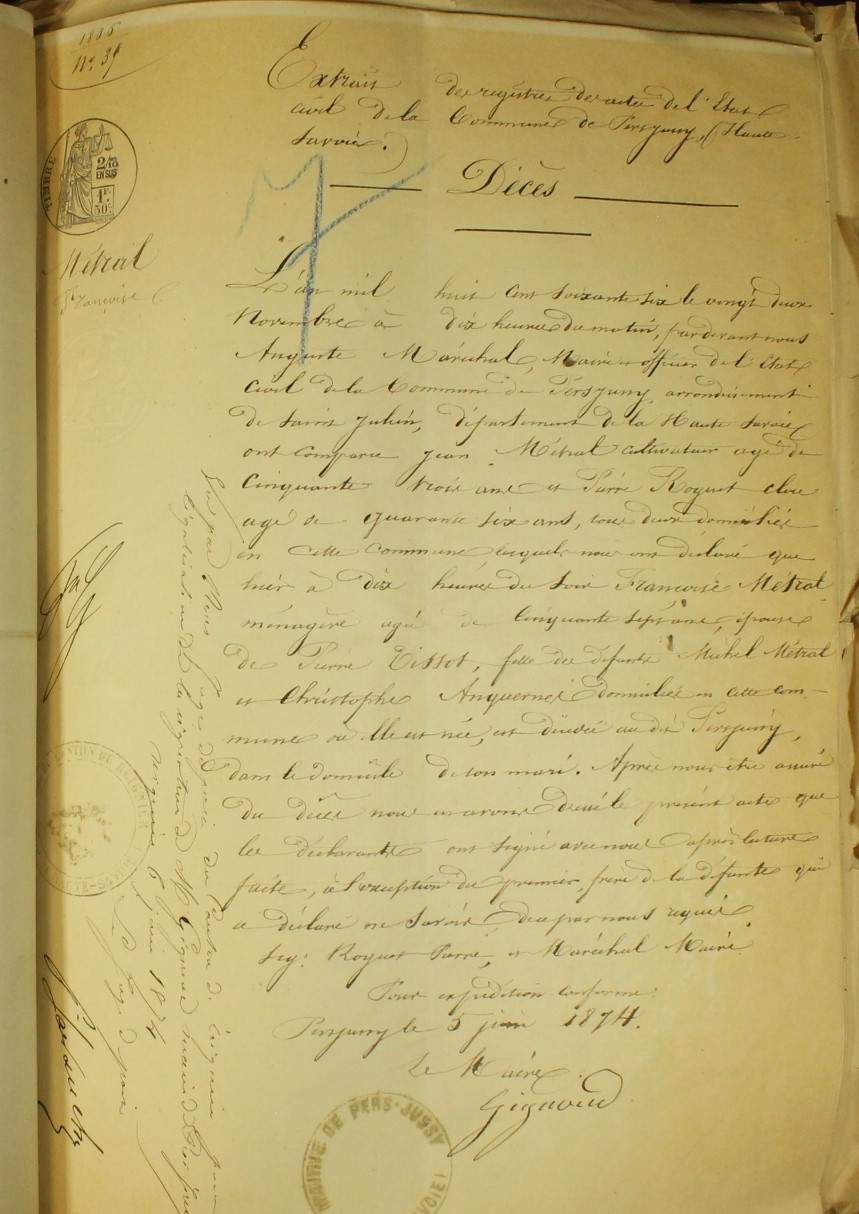 N° 39
Extrait des registres des actes de l'Etat
civil de la Commune de Persjussy, (Haute
Savoie.)
Décès
TIMBRE
2/10
EN SUS
1F
50c
Métral
Françoise
L'an mil huit cent soixante six le vingt deux
Novembre à dix heures du matin, pardevant nous
Auguste Maréchal, Maire officier de l'Etat
civil de la Commune de Persjussy, arrondissement
de Saint Julien, département de la Haute Savoie
ont comparu Jean Métral cultivateur agé de
cinquante trois ans et Pierre Roguet clerc
agé de quarante six ans, tous deux domiciliés
en cette commune lesquels nous ont déclaré que
hier à dix heures du soir Françoise Métral
ménagère agée de cinquante sept ans, épouse
de Pierre Tissot, fille des défunts Michel Métral
et Christophe domiciliée en cette com-
mune où elle est née, est décédée au dit Persjussy,
dans le domicile de son mari. Après nous être assuré
du décès nous en avons dressé le présent acte que
les déclarants ont signé avec nous après lecture
faite, à l'exception du premier, frère de la défunte qui
a déclaré ne savoir, de ce par nous requis
Sig: Roguet Pierre, et Maréchal Maire
Pour expédition conforme
Persjussy le 5 juin 1874.
Le Maire
Gigavoud
MAIRIE DE PERS-JUSSY
SAVOIE)
Vu par Nous Juge de paix du Canton de Reignier pour
légalisation de la signature de M Maire de Pers Jussy
Reignier 6 juin 1874
Le Juge de paix
CANTON DE REIGNIER